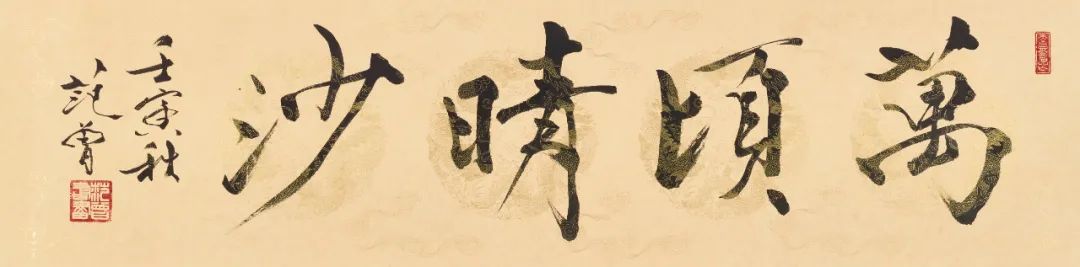 萬頃晴沙
壬寅秋
范曾